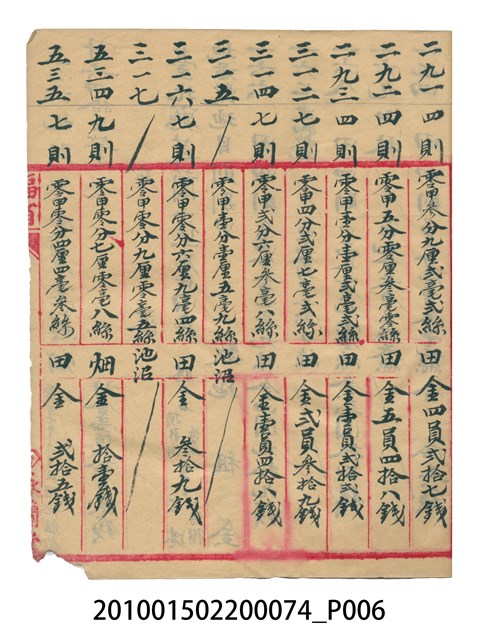 二九一 四則 零甲參分九厘弍毫弍絲 田 金四員弍拾七錢
二九二 四則 零甲五分零厘參毫零絲 田 金五員四拾八錢
二九三 四則 零甲壹分壹厘弍毫弍絲 田 金壹員弍拾弍錢
三一二 七則 零甲四分弍厘七毫弍絲 田 金弍員參拾九錢
三一四 七則 零甲弍分六厘參毫八絲 田 金壹員四拾八錢
三一五 / 零甲壹分壹厘五毫九絲 池沼 /
三一六 七則 零甲零分六厘九毫四絲 田 金參拾九錢
三一七 / 零甲零分九厘零毫五絲 池沼 /
五三四 九則 零甲零分七厘零毫八絲 畑 金拾壹錢
五三五 七則 零甲零分四厘四毫參絲 田 金弍拾五錢
201001502200074_P006